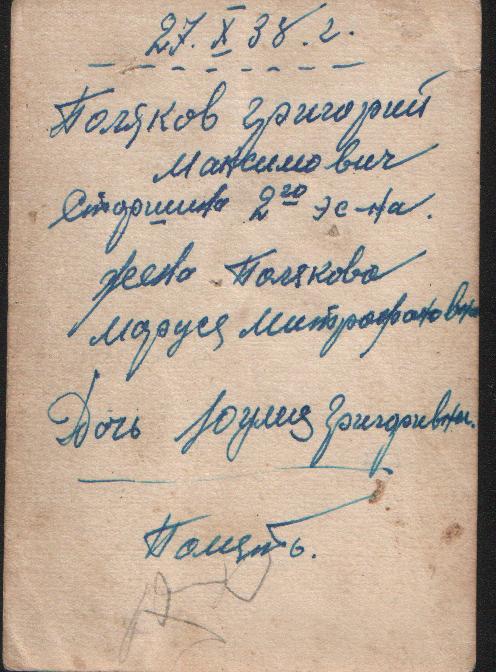 27. X 38. г.
Поляков Григорий
Максимович
Старшина 2го эс-на.
жена Полякова
Маруся Митрофановна
Дочь Юлия Григорьевна.
Помять.